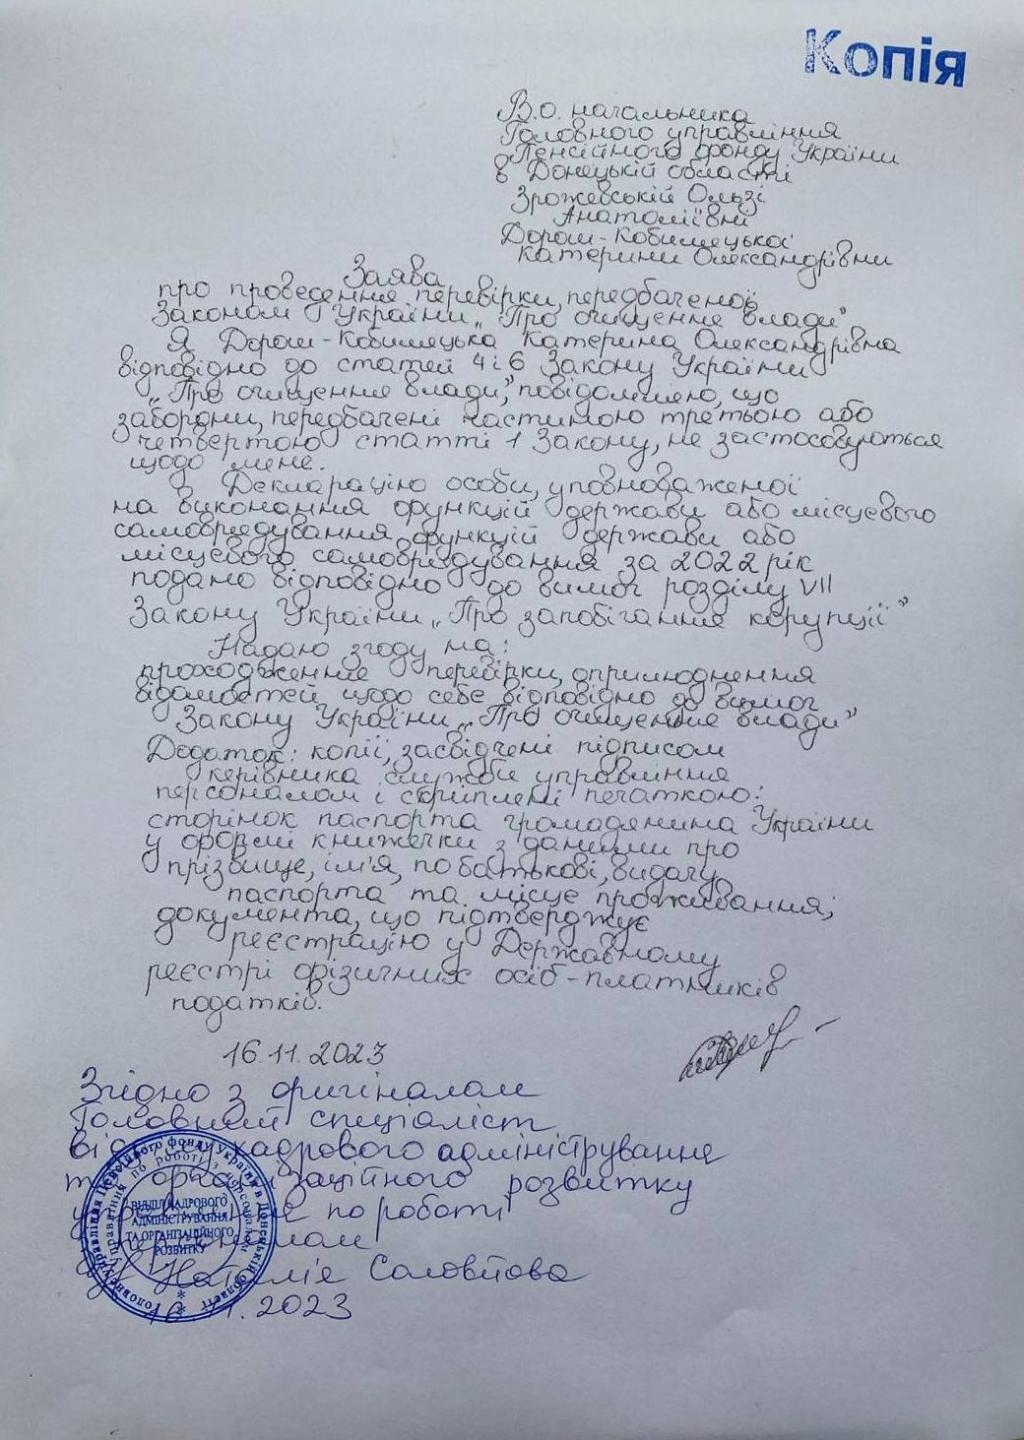 Копія
В.о. начальника
Головного управління
Пенсійного фонду України
в Донецькій області
Зрожевській Ользі
Анатоліївні
Дорош-Кобилецької
Катерини Олександрівни
Заява
про проведення перевірки, передбаченої
Законом України „Про очищення влади"
Я Дорош-Кобилецька Катерина Олександрівна
відповідно до статей 4 і 6 Закону України
„Про очищення влади", повідомляю, що
заборони, передбачені частиною третьою або
четвертою статті 1 Закону, не застосовуються
щодо мене.
Декларацію особи, уповноваженої
на виконання функцій держави або місцевого
самоврядування функцій держави або
місцевого самоврядування за 2022 рік
подано відповідно до вимог розділу VII
Закону України „Про запобігання корупції"
Надаю згоду на:
проходження перевірки, оприлюднення
відомостей щодо себе відповідно до вимог
Закону України „Про очищення влади"
Додаток: копії, засвідчені підписом
керівника служби управління
персоналом і скріплені печаткою:
сторінок паспорта громадянина України
у формі книжечки з даними про
прізвище, ім'я, по батькові, видачу
паспорта та місце проживання;
документа, що підтверджує
реєстрацію у Державному
реєстрі фізичних осіб-платників
податків.
16.11.2023
Згідно з оригіналом
Головний спеціаліст
відділу кадрового адміністрування
та організаційного розвитку
управління по роботі
з персоналом
Наталія Соловйова
16.11.2023
Головне управління Пенсійного фонду України в Донецькій області
Управління по роботі з персоналом
ВІДДІЛ КАДРОВОГО
АДМІНІСТРУВАННЯ
ТА ОРГАНІЗАЦІЙНОГО
РОЗВИТКУ